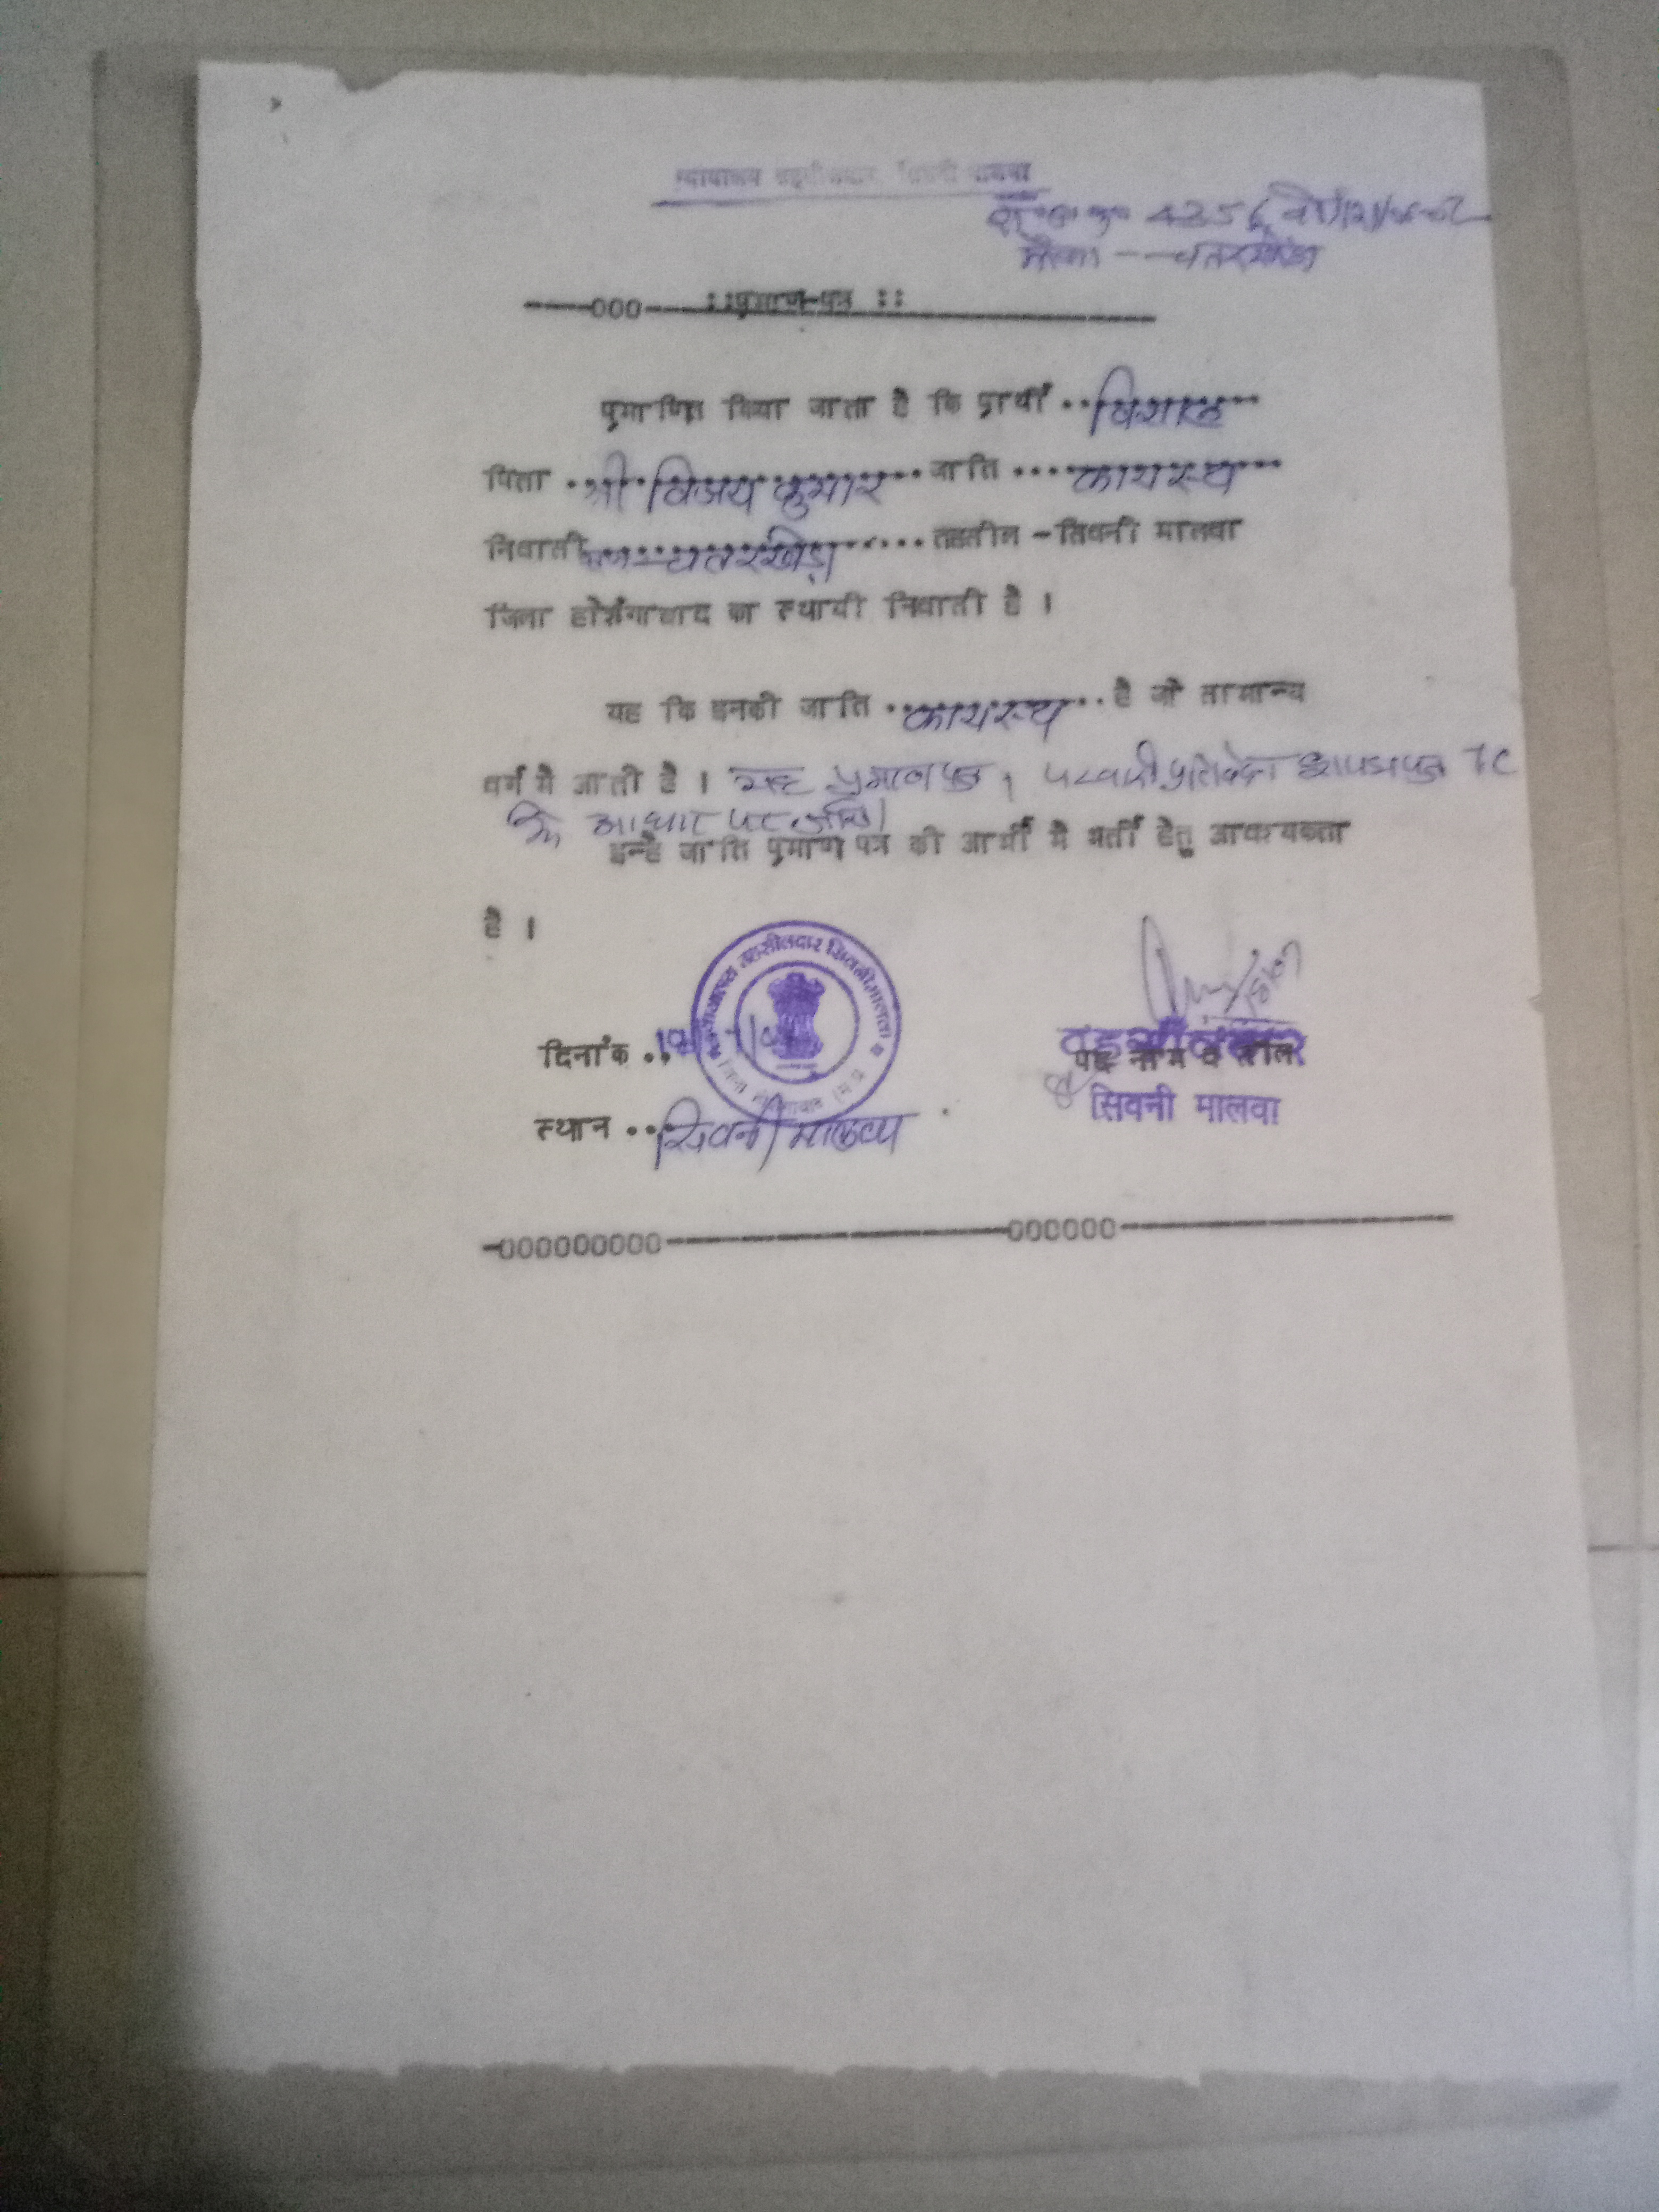 न्यायालय तहसीलदार सिवनी मालवा
4256
मौजा -- चतरखेड़ा
----000---- ::प्रमाण-पत्र ::
प्रमाणित किया जाता है कि प्रार्थी ..विशाल
पिता ..श्री विजय कुमार...जाति ....कायस्थ
निवासी........चतरखेड़ा.....तहसील -सिवनी मालवा
जिला होशंगाबाद का स्थायी निवासी है ।
यह कि इनकी जाति ..कायस्थ..है जो सामान्य
वर्ग में आती है । यह प्रमाण पत्र, पटवारी प्रतिवेदन शपथ पत्र TC
के आधार पर जारी।
इन्हें जाति प्रमाण पत्र की आर्मी में भर्ती हेतु आवश्यकता
है ।
न्यायालय तहसीलदार सिवनी मालवा
जिला होशंगाबाद (म.प्र.)
दिनांक ..
तहसीलदार
पद नाम व सील
सिवनी मालवा
स्थान ...सिवनी मालवा
-000000000----------000000----------